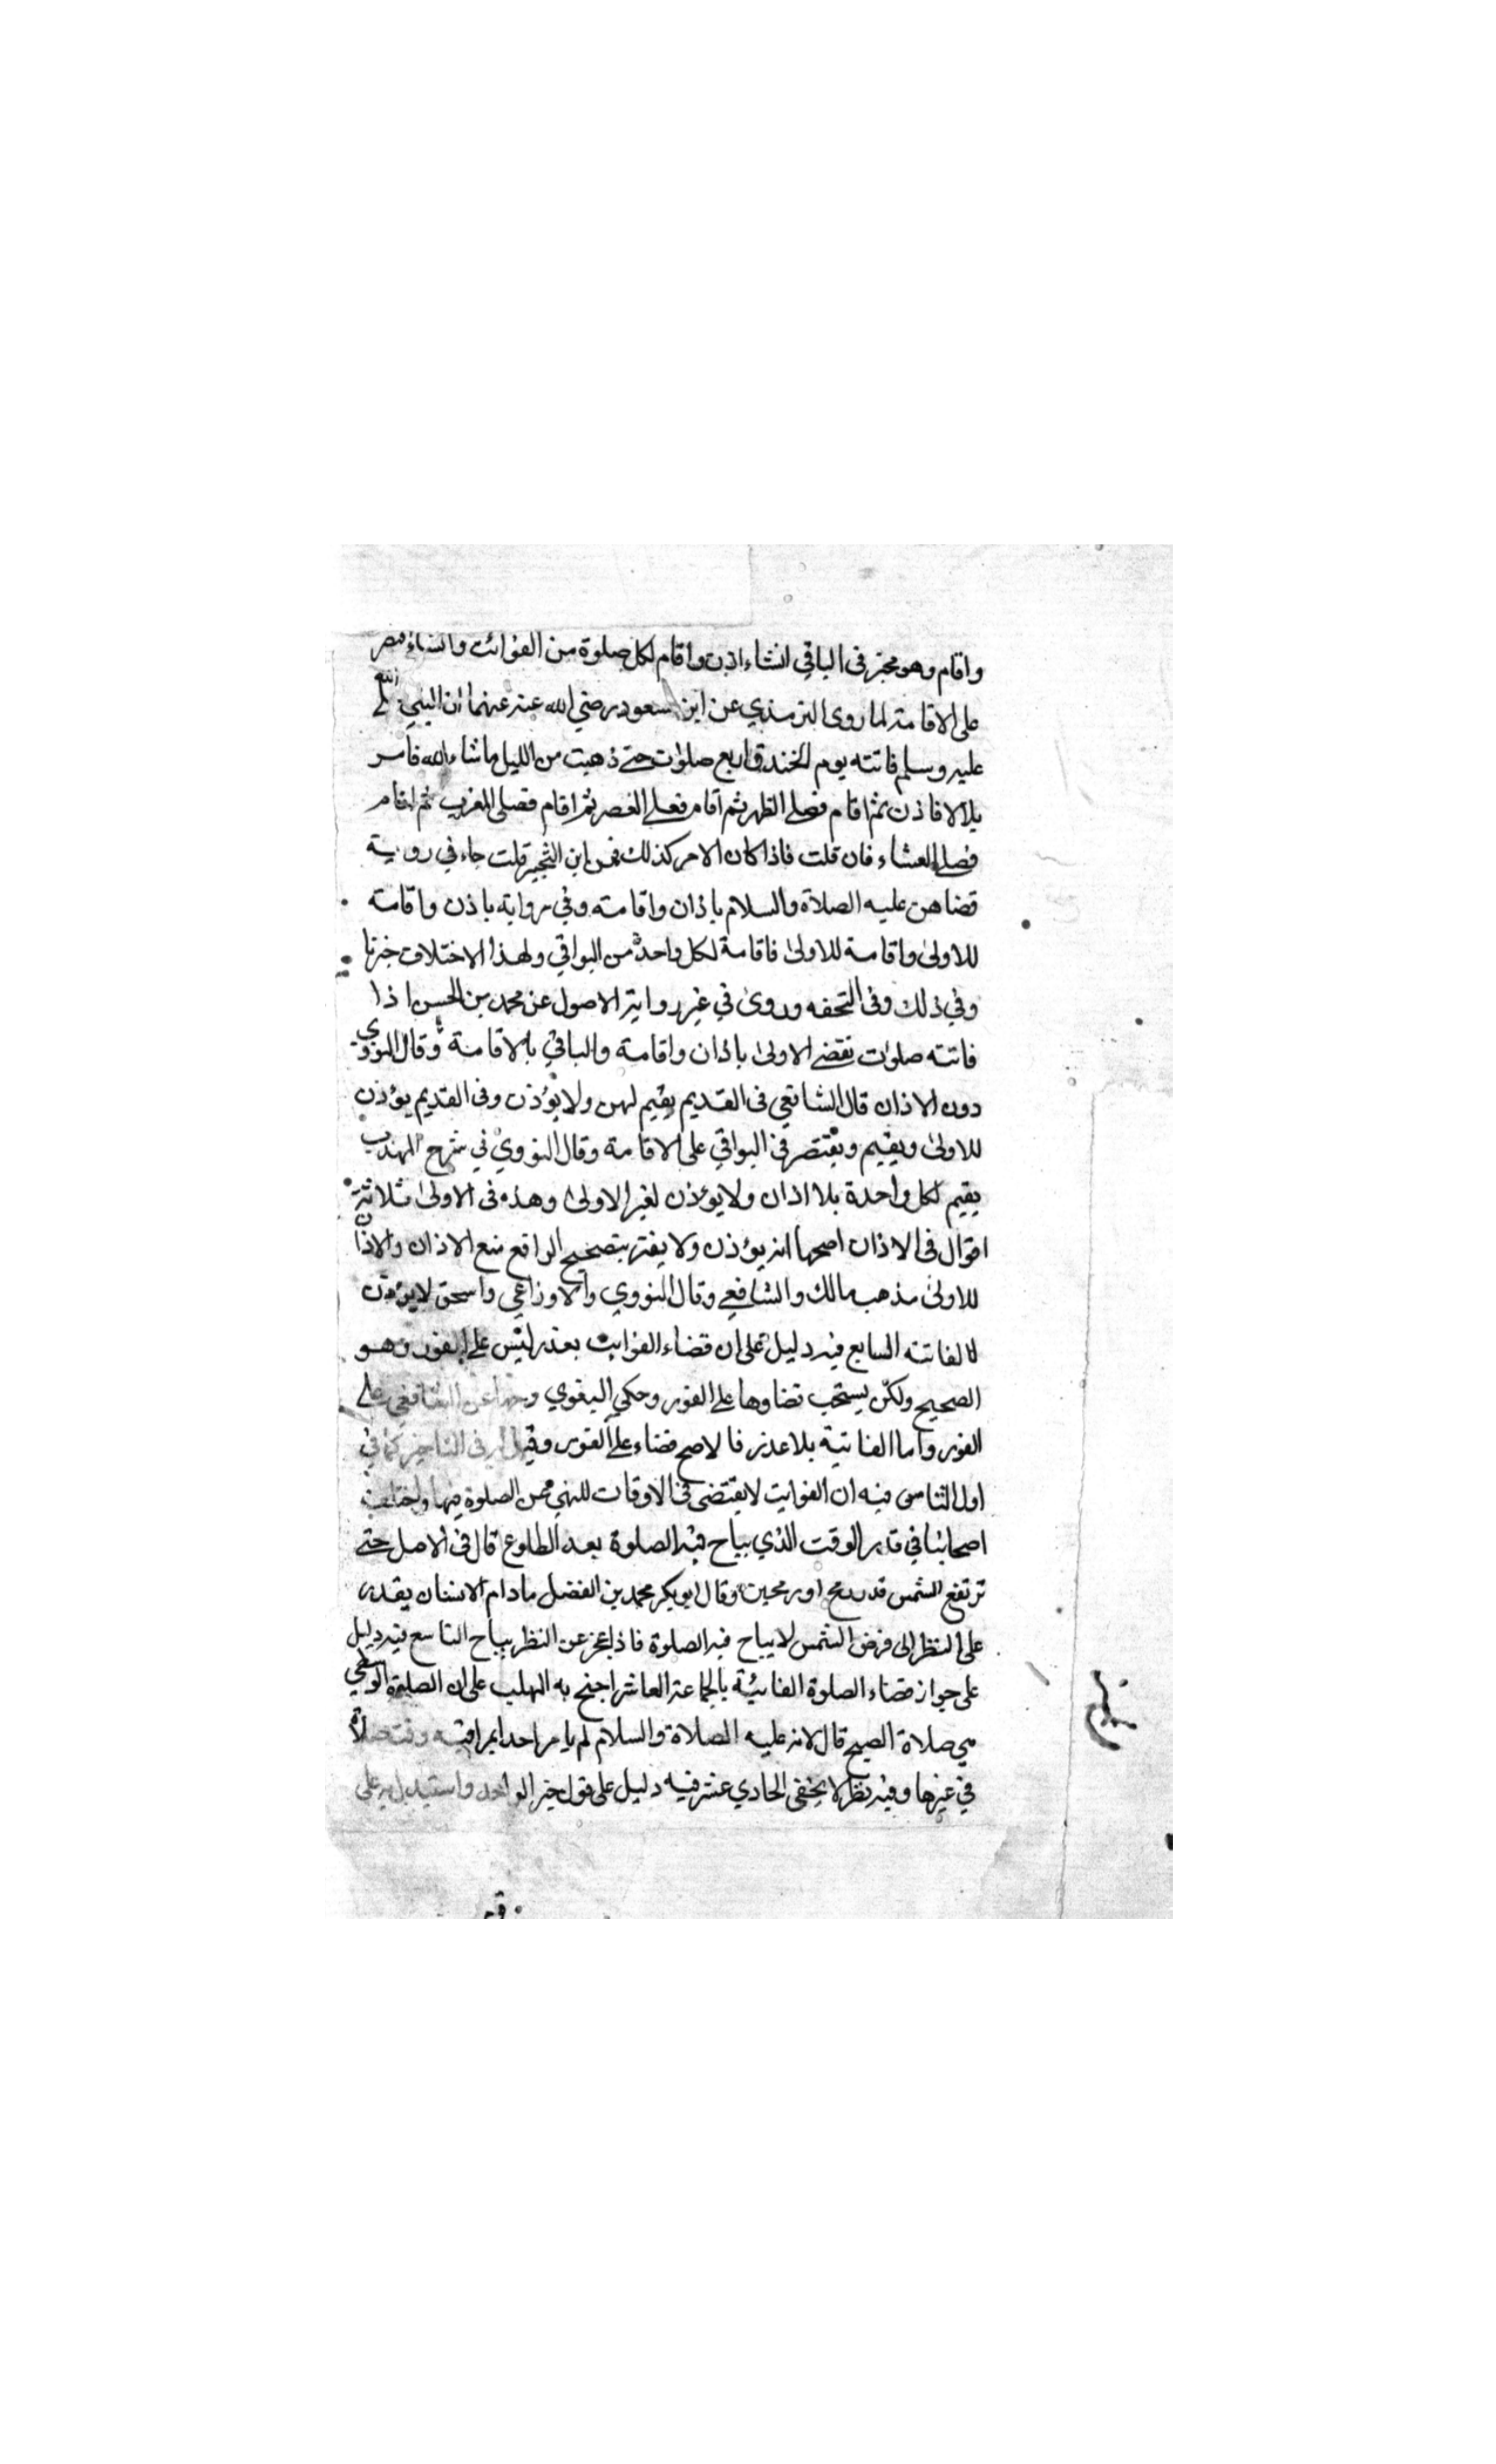 واقام وهو مخير فى الباقي انشاء اذن واقام لكل صلوة من الفوائت وانشاء قصر
على الاقامة لما روى الترمذي عن ابن مسعود رضي الله عنه عنهما ان النبي صلى الله
عليه وسلم فاتته يوم الخندق اربع صلوات حتى ذهبت من الليل ماشاء الله فامر
بلالا فاذن ثم اقام فصلى الظهر ثم اقام فصلى العصر ثم اقام فصلى المغرب ثم اقام
فصلى العشاء فان قلت فاذا كان الامر كذلك فمن اين التخيير قلت جاء في رواية
قضاهن عليه الصلاة والسلام باذان واقامته وفي رواية باذن واقامته
للاولى واقامة للاولى فاقامة لكل واحدة من البواقي ولهذا الاختلاف خيرنا
وفي ذلك وفى التحفه وروى في غير رواية الاصول عن محمد بن الحسن اذا
فاتته صلوات نقضى الاولى باذان واقامة والباقي بالاقامة وقال النووي
دون الاذان قال الشافعي فى القديم يقيم لهن ولا يؤذن وفى القديم يؤذن
للاولى ويقيم ويقتصر فى البواقي على الاقامة وقال النووي في شرح المهذب
يقيم لكل واحدة بلا اذان ولا يوذن لغير الاولى وهذه فى الاولى ثلاثة
اقوال فى الاذان اصحها انه يوذن ولا يغتر بتصحيح الرافع منع الاذان والاذان
للاولى مذهب مالك والشافعي وقال النووي والاوزاعي واسحق لايؤذن
لالفاتته السابع فيه دليل على ان قضاء الفوايت بعذر ليس على الفور وهو
الصحيح ولكن يستحب قضاوها على الفور وحكي البغوي وجها عن الشافعي على
الفور واما الفايتة بلاعذر فالاصح قضاء على الفور وقيل له فى التاخير كما في
اول الثامن فيه ان الفوايت لايقتضى فى الاوقات للنهي عن الصلوة فيها واختلف
اصحابنا في قدر الوقت الذي يباح فيه الصلوة بعد الطلوع قال فى الاصل حتى
ترتفع الشمس قدر رمح او رمحين وقال ابو بكر محمد بن الفضل مادام الانسان يقدر
على النظر الى قرص الشمس لايباح فيه الصلوة فاذا عجز عن النظر يباح التاسع فيه دليل
على جواز قضاء الصلوة الفائتة بالجماعة العاشر احتج به المهلب على ان الصلوة الوسطى
هي صلاة الصبح قال لانه عليه الصلاة والسلام لم يامر احدا بمراقبته وقت صلاة
في غيرها وفيه نظر لايخفى الحادي عشر فيه دليل على قول خبر الواحد واستدل به على